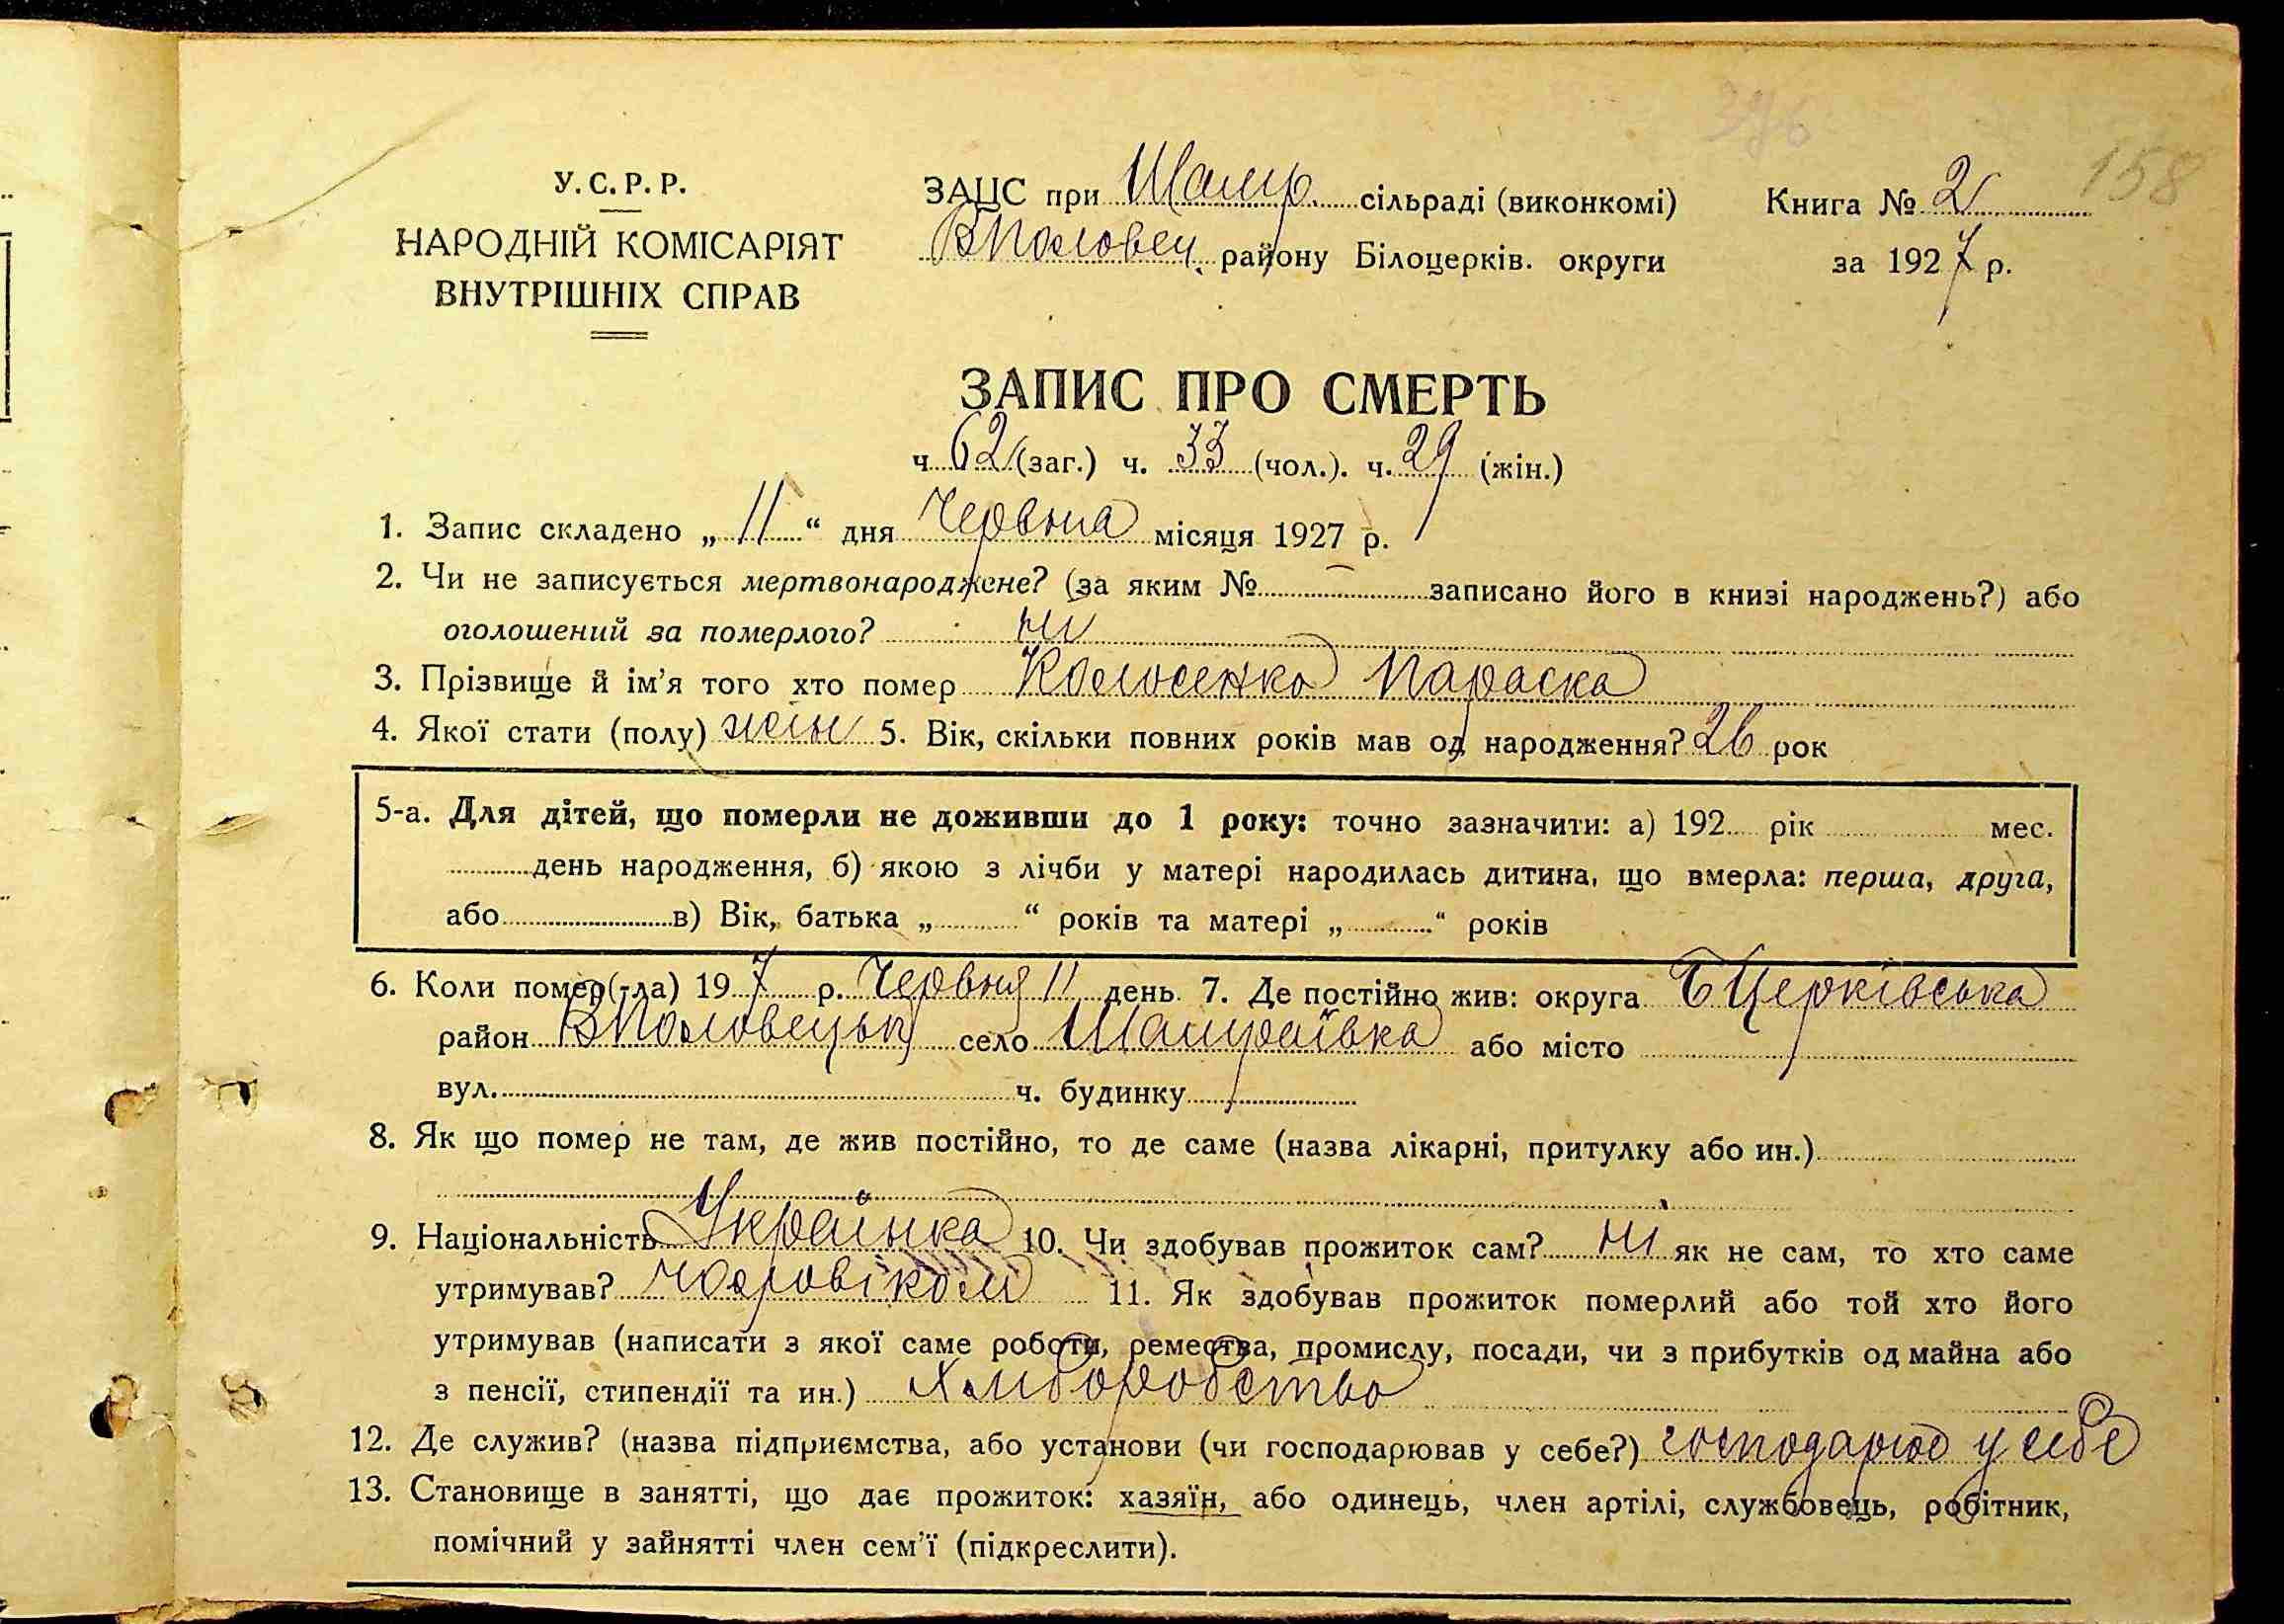 376
158
У.С.Р.Р.
НАРОДНІЙ КОМІСАРІЯТ
ВНУТРІШНІХ СПРАВ
ЗАЦС при Шамр. сільраді (виконкомі)
ВПоловец. району Білоцерків. округи
Книга № 2
за 1927 р.
ЗАПИС ПРО СМЕРТЬ
ч 62 (заг.) ч. 33 (чол.). ч. 29 (жін.)
1. Запис складено „ 11 “ дня Червня місяця 1927 р.
2. Чи не записується мертвонароджене? (за яким № – записано його в книзі народжень?) або
оголошений за померлого? ні
3. Прізвище й ім’я того хто помер Колосенко Параска
4. Якої стати (полу) жін 5. Вік, скільки повних років мав од народження? 26 рок
5-а. Для дітей, що померли не доживши до 1 року: точно зазначити: а) 192 рік мес.
день народження, б) якою з лічби у матері народилась дитина, що вмерла: перша, друга,
або в) Вік, батька „ “ років та матері „ “ років
6. Коли помер(-ла) 19 7 р. Червня 11 день 7. Де постійно жив: округа БЦерківська
район ВПоловецьк село Шамраївка або місто
вул. ч. будинку
8. Як що помер не там, де жив постійно, то де саме (назва лікарні, притулку або ин.)
9. Національність Українка 10. Чи здобував прожиток сам? ні як не сам, то хто саме
утримував? чоловіком 11. Як здобував прожиток померлий або той хто його
утримував (написати з якої саме роботи, ремества, промислу, посади, чи з прибутків од майна або
з пенсії, стипендії та ин.) Хліборобство
12. Де служив? (назва підприємства, або установи (чи господарював у себе?) господарює у себе
13. Становище в занятті, що дає прожиток: хазяїн, або одинець, член артілі, службовець, робітник,
помічний у зайнятті член сем’ї (підкреслити).